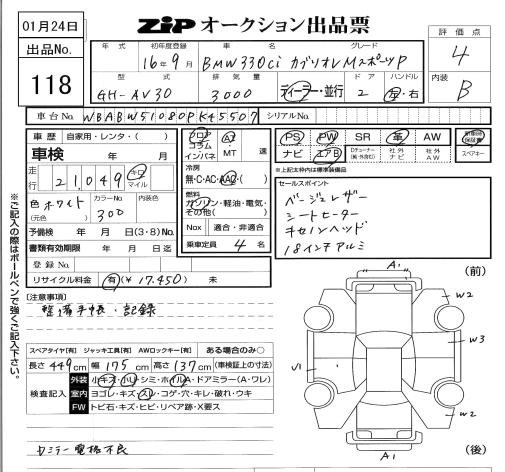 01月24日
出品No.
118
ZIP オークション出品票
評価点
4
内装
B
年式 初年度登録 車名 グレード
16年9月 BMW330ci カブリオレMスポーツP
型式 排気量 ディーラー・並行 ドア ハンドル
GH-AV30 3000 2 左・右
車台No. WBABW51080PK45507 シリアルNo.
車歴 自家用・レンタ・( )
車検 年 月
走行 21,049 キロ マイル
色 ホワイト カラーNo. 300 内装色
(元色)
予備検 年 月 日(3・8)No.
書類有効期限 年 月 日迄
登録No.
リサイクル料金 有(¥17,450) 未
フロア コラム インパネ
AT MT 速
冷房
無・C・AC・AAC・( )
燃料
ガソリン・軽油・電気・その他( )
Nox 適合・非適合
乗車定員 4 名
PS PW SR 革 AW
ナビ エアB 社外ナビ 社外AW
新車時保証書
スペアキー
※上記太枠内は標準装備品
セールスポイント
ベージュレザー
シートヒーター
キセノンヘッド
18インチアルミ
[注意事項]
整備手帳・記録
スペアタイヤ[有] ジャッキ工具[有] AWロックキー[有] ある場合のみ○
長さ 449cm 幅 175cm 高さ 137cm (車検証上の寸法)
検査記入
外装 小キズ・小ヘコ・シミ・ホイルA・ドアミラー(A・ワレ)
室内 ヨゴレ・キズ・スレ・コゲ・穴・キレ・破れ・ウキ
FW トビ石・キズ・ヒビ・リペア跡・X要ス
カミラー電格不良
※ご記入の際はボールペンで強くご記入下さい。
(前)
A1
W2
W3
U1
W2
A1
(後)